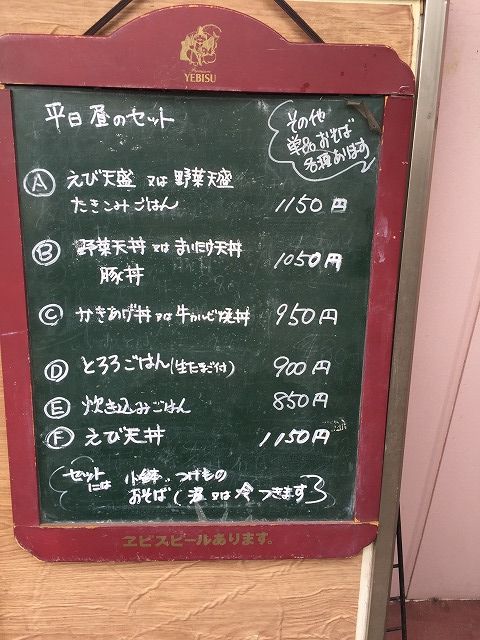 Premium
YEBISU
平日昼のセット
その他
単品おそば
各種あります
Ⓐ えび天盛 又は 野菜天盛
たきこみごはん 1150円
Ⓑ 野菜天丼 又は まいたけ天丼
豚丼 1050円
Ⓒ かきあげ丼 又は 牛カルビ焼丼 950円
Ⓓ とろろごはん(生たまご付) 900円
Ⓔ 炊き込みごはん 850円
Ⓕ えび天丼 1150円
セットには 小鉢、つけもの
おそば(温 又は 冷 つきます)
ヱビスビールあります。